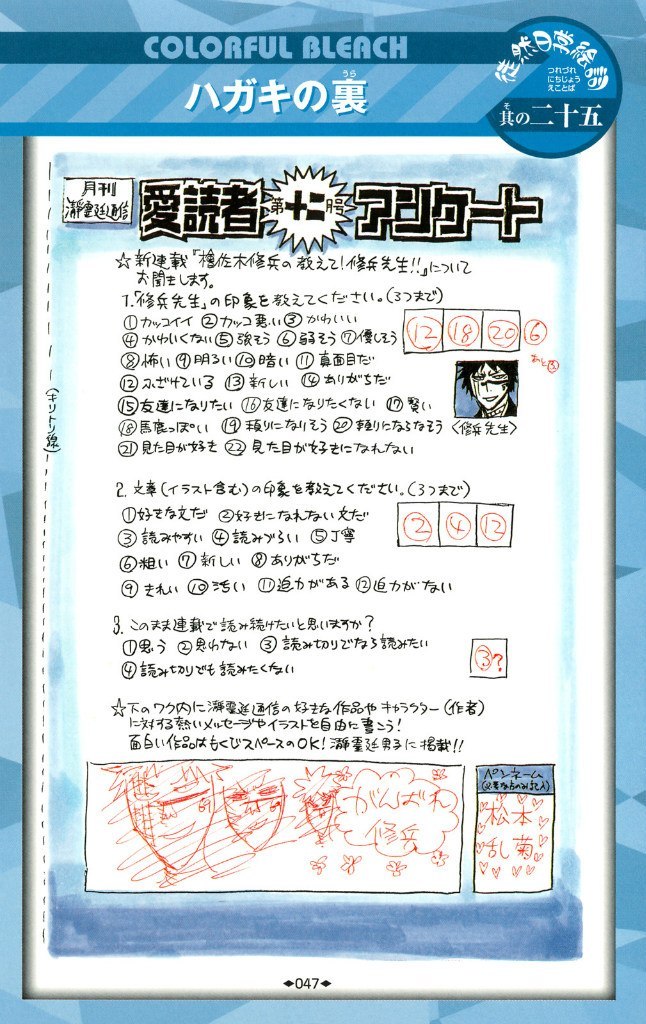 COLORFUL BLEACH
ハガキの裏
うら
徒然日常絵詞
つれづれ
にちじょう
えことば
其の二十五
そ
月刊
瀞霊廷通信
愛読者
第十二月号
アンケート
☆新連載『檜佐木修兵の教えて!修兵先生!!』について
お聞きします。
1.「修兵先生」の印象を教えてください。(3つまで)
①カッコイイ ②カッコ悪い ③かわいい
④かわいくない ⑤強そう ⑥弱そう ⑦優しそう
⑧怖い ⑨明るい ⑩暗い ⑪真面目だ
⑫ふざけている ⑬新しい ⑭ありがちだ
⑮友達になりたい ⑯友達になりたくない ⑰賢い
⑱馬鹿っぽい ⑲頼りになりそう ⑳頼りにならなそう
㉑見た目が好き ㉒見た目が好きになれない
⑫ ⑱ ⑳ ⑥
あと⑤
〈修兵先生〉
(キリトリ線)
2. 文章(イラスト含む)の印象を教えてください。(3つまで)
①好きな文だ ②好きになれない文だ
③読みやすい ④読みづらい ⑤丁寧
⑥粗い ⑦新しい ⑧ありがちだ
⑨きれい ⑩汚い ⑪迫力がある ⑫迫力がない
② ④ ⑫
3. このまま連載で読み続けたいと思いますか?
①思う ②思わない ③読み切りでなら読みたい
④読み切りでも読みたくない
③?
☆下のワク内に瀞霊廷通信の好きな作品やキャラクター(作者)
に対する熱いメッセージやイラストを自由に書こう!
面白い作品はもくじスペースのOK!瀞霊廷男子に掲載!!
がんばれ
修兵
ペンネーム
(必要な方のみ記入)
松本
乱菊
◆047◆